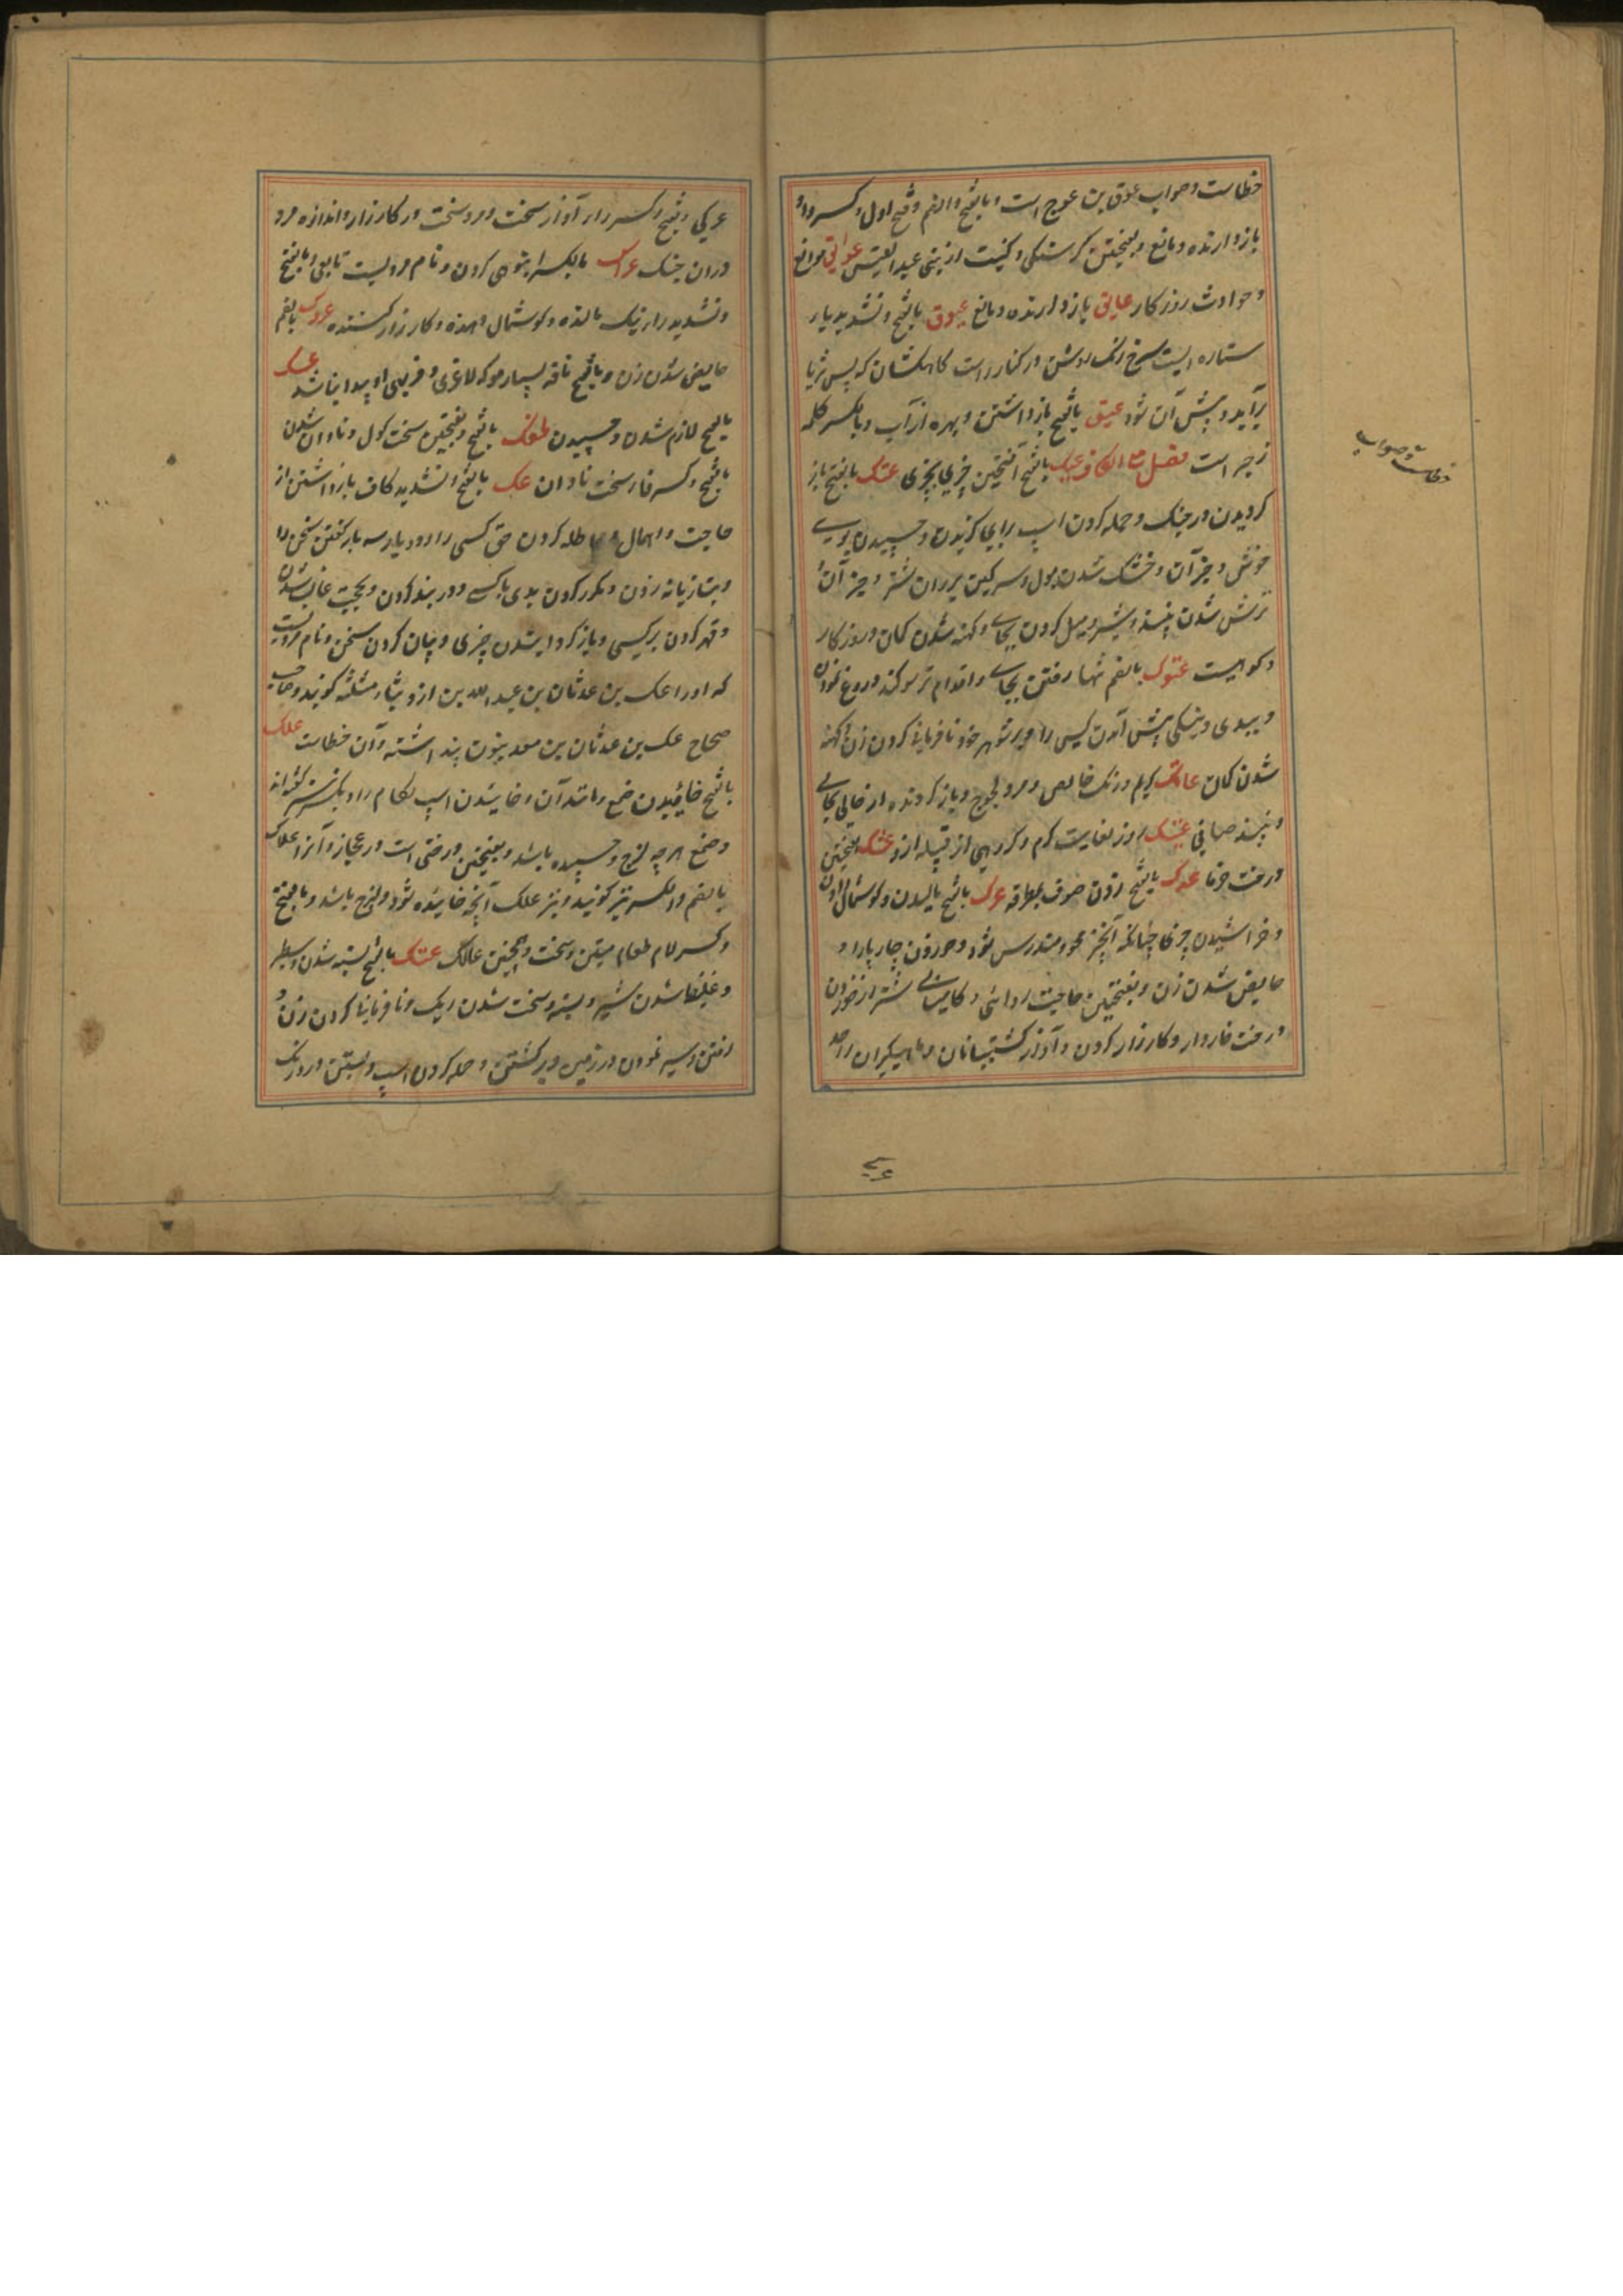 خطاست و صواب عوق بن عوج است و بالفتح والضم و فتح اول و کسر واو
باز دارنده و مانع و بفتحتین گرسنگی و کنیت از بنی عبد القیس عوائق موانع
و حوادث روزگار عایق باز دارنده و مانع عیوق بالفتح و تشدید یا
ستاره ایست سرخ رنگ روشن در کنار راست کاهکشان که پس ثریا
برآید و پیش آن شود عیق بالفتح باز داشتن و بهره از آب و بالکسر کلمه
زجر است فصل مع الکاف عبک بالفتح آمیختن چیزی بچیزی عتک بالفتح باز
گردیدن در جنگ و حمله کردن اسپ برای گزیدن و چسپیدن بوی
خوش و جز آن و خشک شدن بول و سرگین بر ران شتر و جز آن و
ترش شدن نبیذ و شیر و میل کردن بجای و کهنه شدن کمان و روزگار
و کوهیست عتوک بالضم تنها رفتن بجای و اقدام بر سوگند دروغ نمودن
و ببدی و نیکی پیش آمدن کسی را و بر شوهر خود نافرمانی کردن زن و کهنه
شدن کمان عاتک کریم و رنگ خالص و مرد لجوج و باز گردنده از حالی بحالی
و نبیذ صافی عتیک روز بغایت گرم و گروهی از قبیله ازد عثک بفتحتین
درخت خرما عدک بالفتح زدن صوف بمطرقه عرک بالفتح مالیدن و گوشمال دادن
و خراشیدن چیزی چنانکه آنچیز محو و مندرس شود و خوردن چارپا را و
حایض شدن زن و بفتحتین حاجت روائی و کامیابی شتر از خوردن
درخت خاردار و کارزار کردن و آواز کشتیبانان و ماهیگیران واحد
و صواب
عرکی و بفتح و کسر را آواز سخت و مرد سخت در کارزار و اندازه مرد
در آن جنگ عراک بالکسر انبوهی کردن و نام مردیست تابعی و بالفتح
و تشدید را نیک مالنده و گوشمال دهنده و کارزار کننده عروک بالضم
حایض شدن زن و بالفتح ناقه بسیار مو که لاغری و فربهی او پیدا نباشد عسک
بالفتح لازم شدن و چسپیدن عفک بالفتح و بفتحتین سخت گول و نادان شدن
بالفتح و کسر فا سخت نادان عک بالفتح و تشدید کاف باز داشتن از
حاجت و اهمال و مماطله کردن حق کسی را دو بار یا سه بار گفتن سخن را
و بتازیانه زدن و مکرر کردن بدی با کسی و در بند کردن و بحجت غالب شدن
و قهر کردن بر کسی و باز گردانیدن چیزی و بیان کردن سخن و نام مردیست
که او را عک بن عدثان بن عبد الله بن ازد بثاء مثلثه گویند و صاحب
صحاح عک بن عدنان بن معد بنون پنداشته و آن خطاست علک
بالفتح خائیدن صمغ و مانند آن و خائیدن اسپ لگام را و
و صمغ هر چه لزج و چسپیده باشد و بفتحتین درختی است در حجاز و آنرا علاک
بالضم و الکسر نیز گویند و نیز علک آنچه خائیده شود و لزج باشد و بالفتح
و کسر لام طعام متین و سخت و همچنین عالک عنک بالفتح بسته شدن و سطبر
و غلیظ شدن شیر و بسته و سخت شدن ریگ و نافرمانی کردن زن و
رفتن و سیر نمودن در زمین و برگشتن و حمله کردن اسپ و بستن در و رنگ